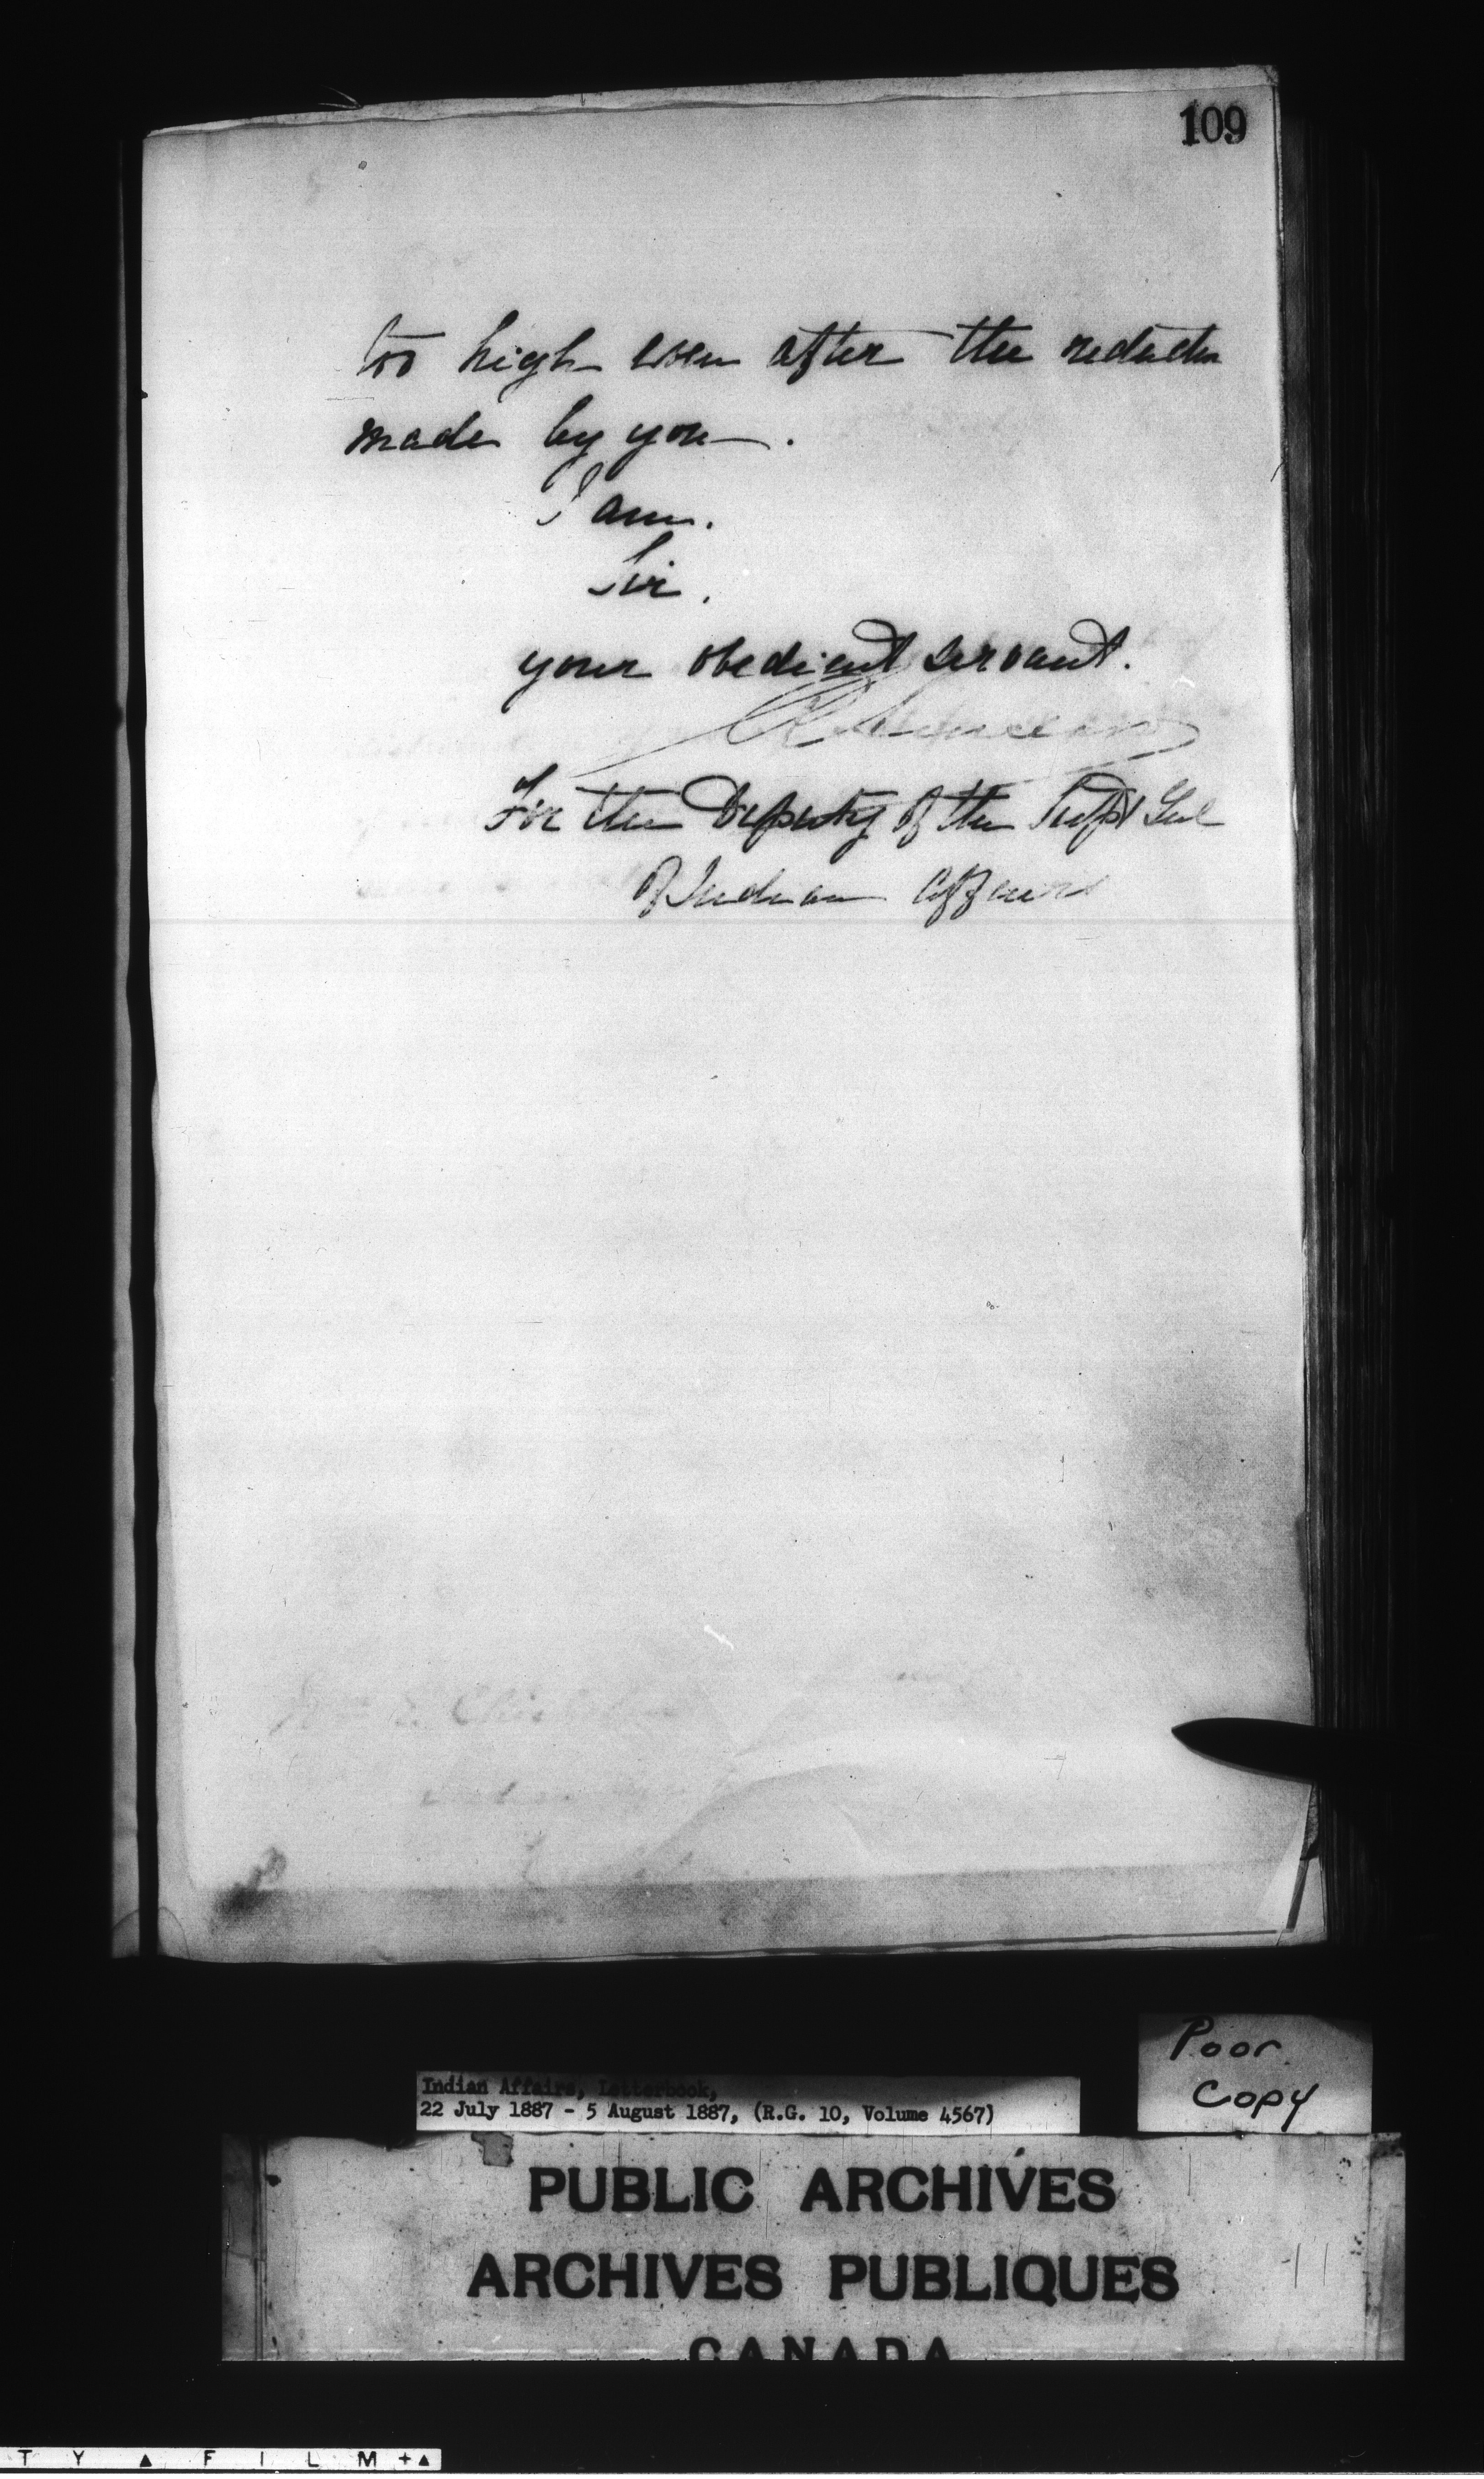 109
too high even after the reduction
made by you.
I am.
Sir.
your obedient servant.
For the Deputy of the Supt Genl
of Indian Affairs
Poor
Copy
Indian Affairs, Letterbook,
22 July 1887 - 5 August 1887, (R.G. 10, Volume 4567)
PUBLIC ARCHIVES
ARCHIVES PUBLIQUES
CANADA
T Y ▲ F I L M +▲